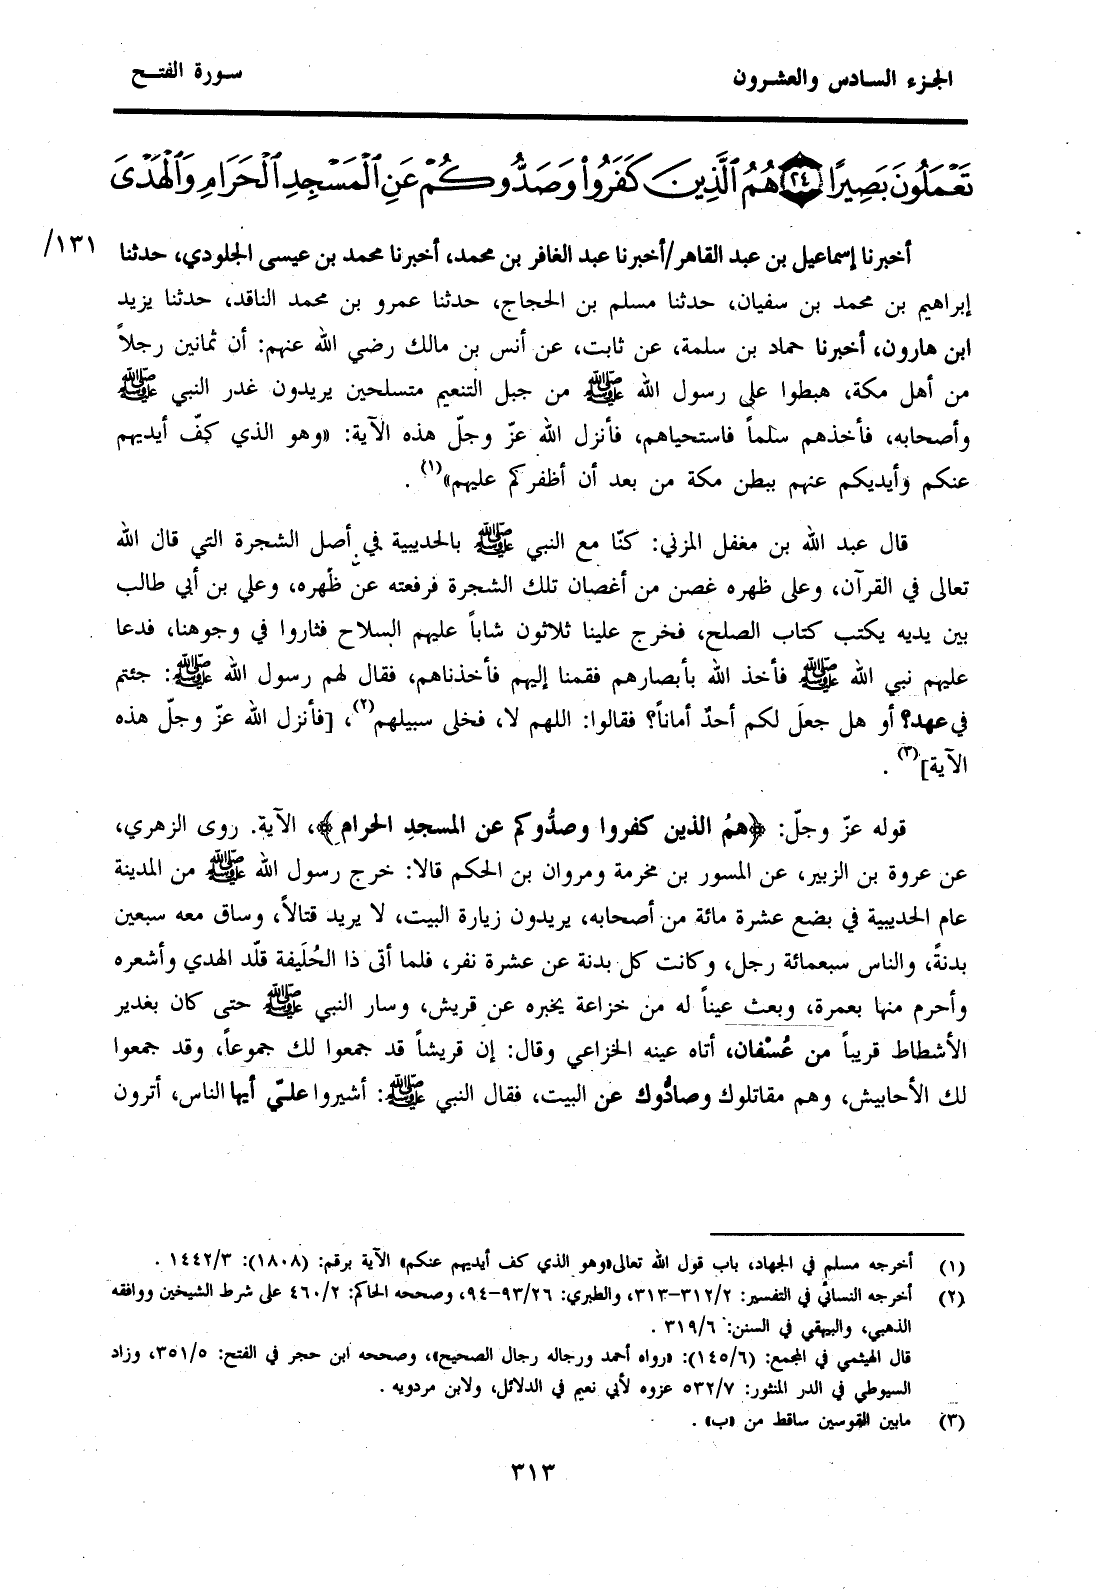 الجزء السادس والعشرون
سورة الفتح
تَعْمَلُونَ بَصِيرًا ﴿٢٤﴾ هُمُ ٱلَّذِينَ كَفَرُوا۟ وَصَدُّوكُمْ عَنِ ٱلْمَسْجِدِ ٱلْحَرَامِ وَٱلْهَدْىَ
أخبرنا إسماعيل بن عبد القاهر/أخبرنا عبد الغافر بن محمد، أخبرنا محمد بن عيسى الجلودي، حدثنا
١٣١/
إبراهيم بن محمد بن سفيان، حدثنا مسلم بن الحجاج، حدثنا عمرو بن محمد الناقد، حدثنا يزيد
ابن هارون، أخبرنا حماد بن سلمة، عن ثابت، عن أنس بن مالك رضي الله عنهم: أن ثمانين رجلاً
من أهل مكة، هبطوا على رسول الله ﷺ من جبل التنعيم متسلحين يريدون غدر النبي ﷺ
وأصحابه، فأخذهم سلماً فاستحياهم، فأنزل الله عزّ وجلّ هذه الآية: «وهو الذي كفّ أيديهم
عنكم وأيديكم عنهم ببطن مكة من بعد أن أظفركم عليهم»(١) .
قال عبد الله بن مغفل المزني: كنّا مع النبي ﷺ بالحديبية في أصل الشجرة التي قال الله
تعالى في القرآن، وعلى ظهره غصن من أغصان تلك الشجرة فرفعته عن ظهره، وعلي بن أبي طالب
بين يديه يكتب كتاب الصلح، فخرج علينا ثلاثون شاباً عليهم السلاح فثاروا في وجوهنا، فدعا
عليهم نبي الله ﷺ فأخذ الله بأبصارهم فقمنا إليهم فأخذناهم، فقال لهم رسول الله ﷺ: جئتم
في عهد؟ أو هل جعلَ لكم أحدٌ أماناً؟ فقالوا: اللهم لا، فخلى سبيلهم(٢)، [فأنزل الله عزّ وجلّ هذه
الآية](٣) .
قوله عزّ وجلّ: ﴿همُ الذين كفروا وصدُّوكم عن المسجدِ الحرامِ﴾، الآية. روى الزهري،
عن عروة بن الزبير، عن المسور بن مخرمة ومروان بن الحكم قالا: خرج رسول الله ﷺ من المدينة
عام الحديبية في بضع عشرة مائة من أصحابه، يريدون زيارة البيت، لا يريد قتالاً، وساق معه سبعين
بدنةً، والناس سبعمائة رجل، وكانت كل بدنة عن عشرة نفر، فلما أتى ذا الحُلَيفة قلّد الهدي وأشعره
وأحرم منها بعمرة، وبعث عيناً له من خزاعة يخبره عن قريش، وسار النبي ﷺ حتى كان بغدير
الأشطاط قريباً من عُسْفان، أتاه عينه الخزاعي وقال: إن قريشاً قد جمعوا لك جموعاً، وقد جمعوا
لك الأحابيش، وهم مقاتلوك وصادُّوك عن البيت، فقال النبي ﷺ: أشيروا عليّ أيها الناس، أترون
(١) أخرجه مسلم في الجهاد، باب قول الله تعالى«وهو الذي كف أيديهم عنكم» الآية برقم: (١٨٠٨): ١٤٤٢/٣ .
(٢) أخرجه النسائي في التفسير: ٣١٢/٢-٣١٣، والطبري: ٩٣/٢٦-٩٤، وصححه الحاكم: ٤٦٠/٢ على شرط الشيخين ووافقه
الذهبي، والبيهقي في السنن: ٣١٩/٦ .
قال الهيثمي في المجمع: (١٤٥/٦): «رواه أحمد ورجاله رجال الصحيح»، وصححه ابن حجر في الفتح: ٣٥١/٥، وزاد
السيوطي في الدر المنثور: ٥٣٢/٧ عزوه لأبي نعيم في الدلائل، ولابن مردويه .
(٣) مابين القوسين ساقط من «ب» .
٣١٣